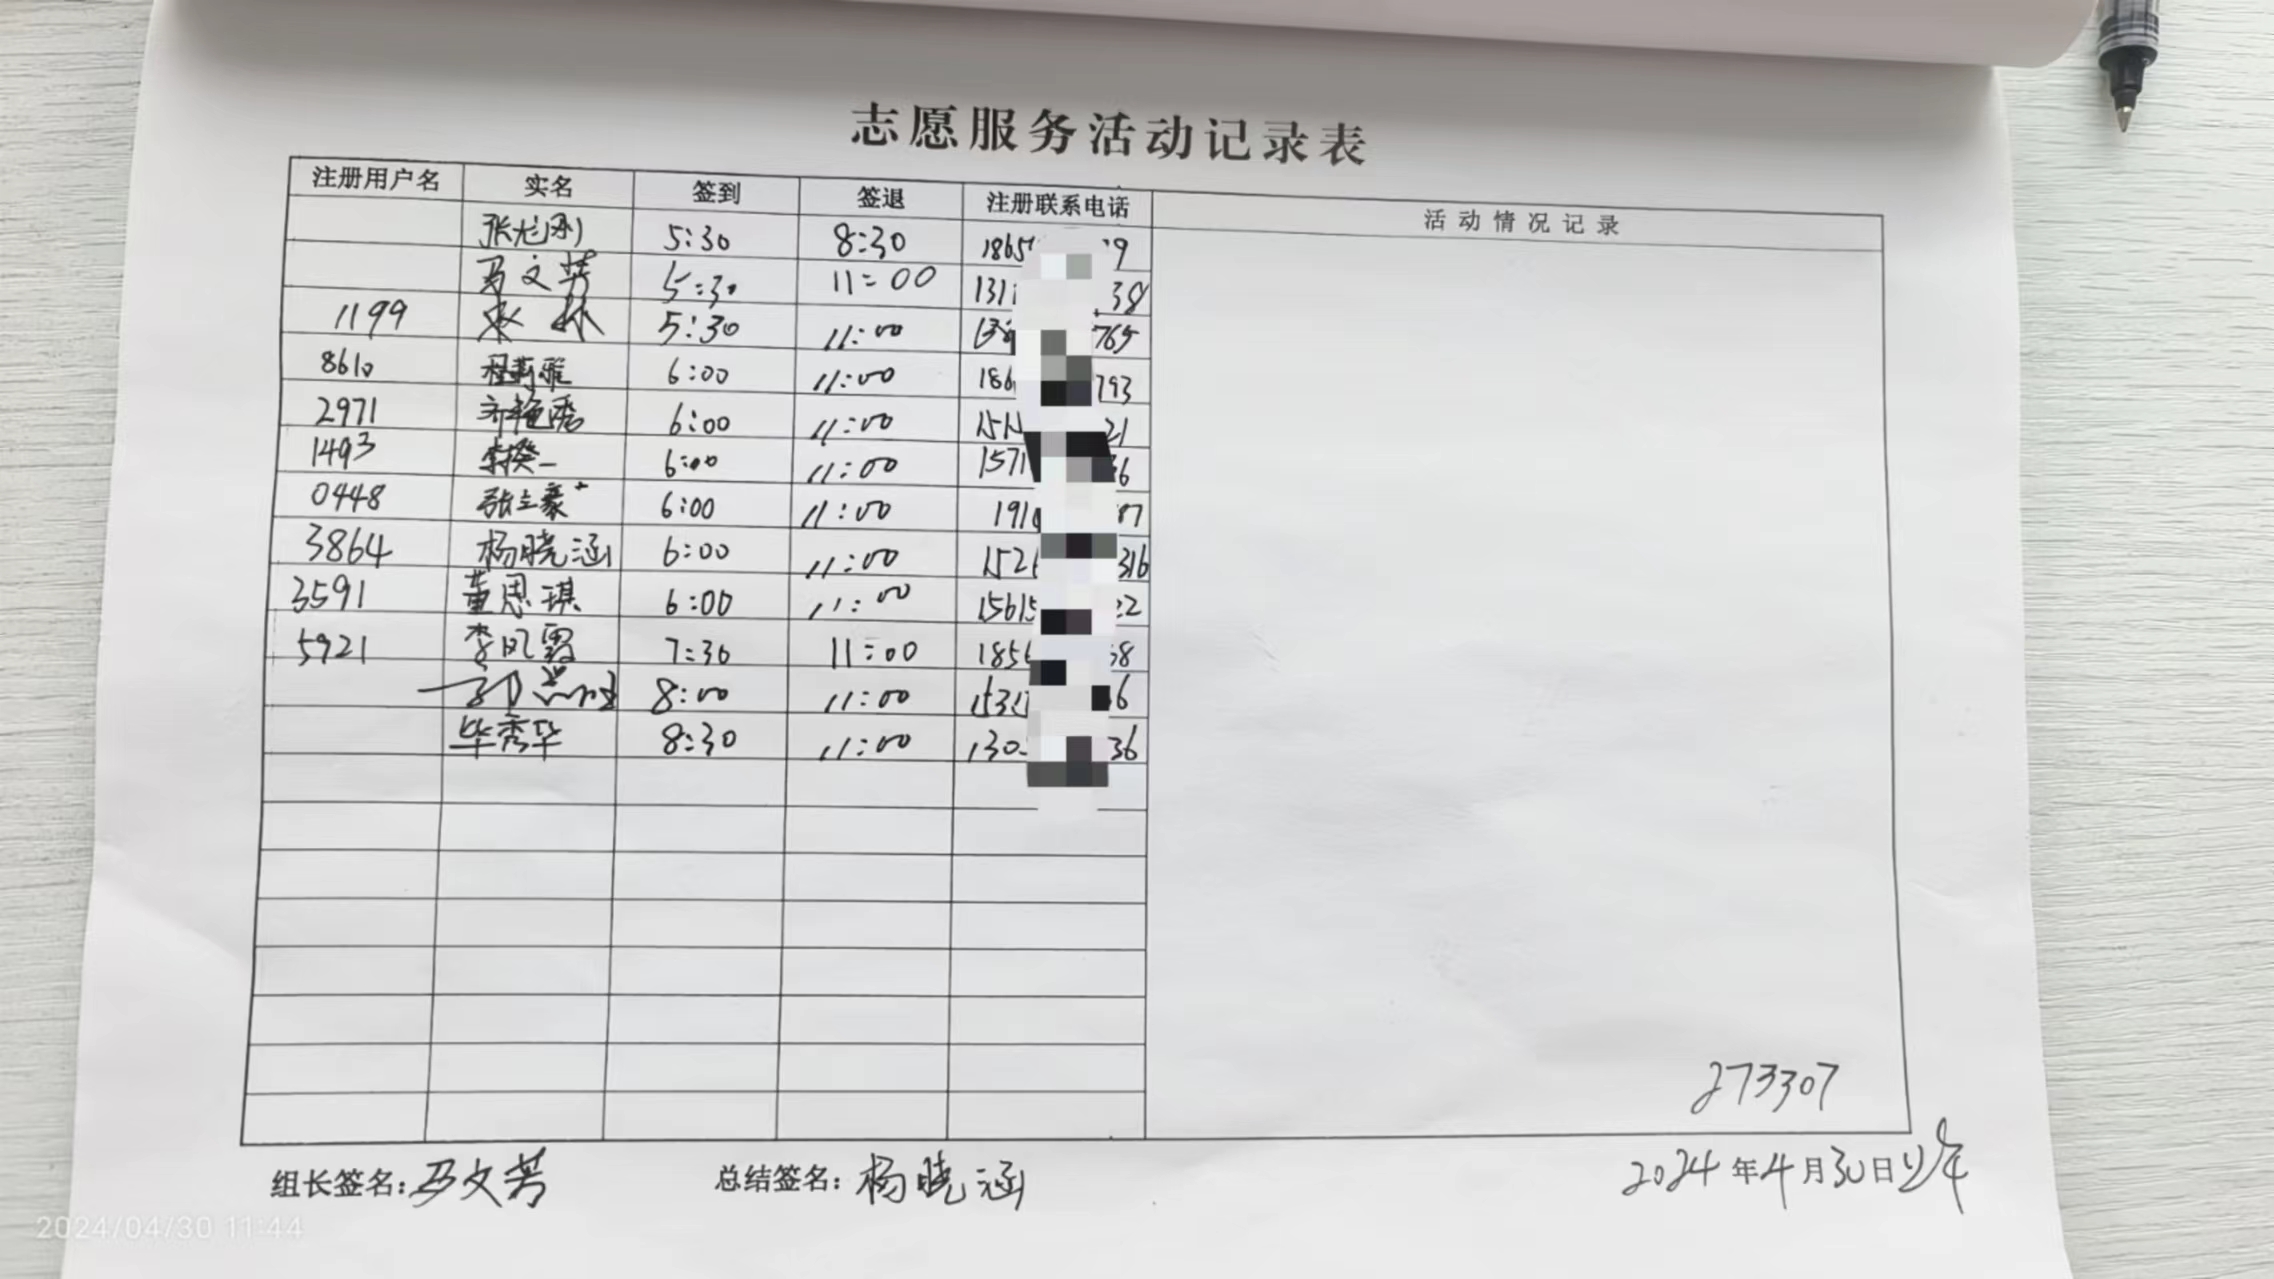 志愿服务活动记录表
注册用户名 实名 签到 签退 注册联系电话 活动情况记录
5:30 8:30 1865 9
马文芳 5:30 11:00 131 38
1199 5:30 11:00 138 765
8610 程莉雅 6:00 11:00 186 793
2971 齐艳秀 6:00 11:00 151 21
1493 6:00 11:00 1571 6
0448 张立豪 6:00 11:00 191 87
3864 杨晓涵 6:00 11:00 152 316
3591 董思琪 6:00 11:00 15615 22
5921 李凤霞 7:30 11:00 185 38
8:00 11:00 153 6
毕秀华 8:30 11:00 130 36
273307
组长签名:马文芳 总结签名:杨晓涵 2024年4月30日上午
2024/04/30 11:44